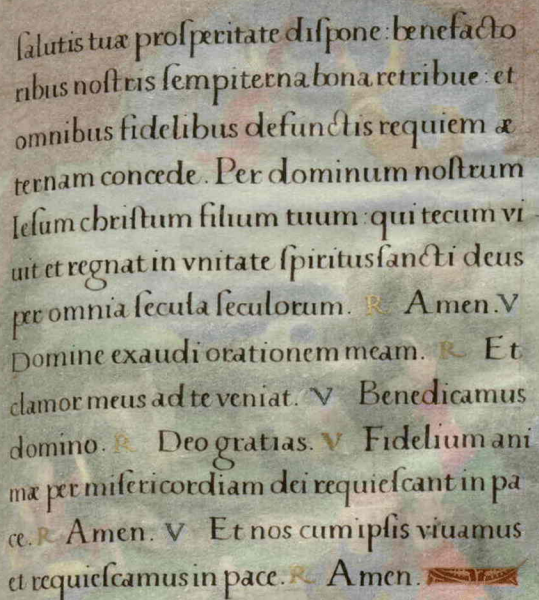 ſalutis tuæ proſperitate diſpone: benefacto
ribus noſtris ſempiterna bona retribue: et
omnibus fidelibus defunctis requiem æ
ternam concede. Per dominum noſtrum
Ieſum chriſtum filium tuum: qui tecum vi
uit et regnat in vnitate ſpiritus ſancti deus
per omnia ſecula ſeculorum. R Amen. V
Domine exaudi orationem meam. R Et
clamor meus ad te veniat. V Benedicamus
domino. R Deo gratias. V Fidelium ani
mæ per miſericordiam dei requieſcant in pa
ce. R Amen. V Et nos cum ipſis viuamus
et requieſcamus in pace. R Amen.